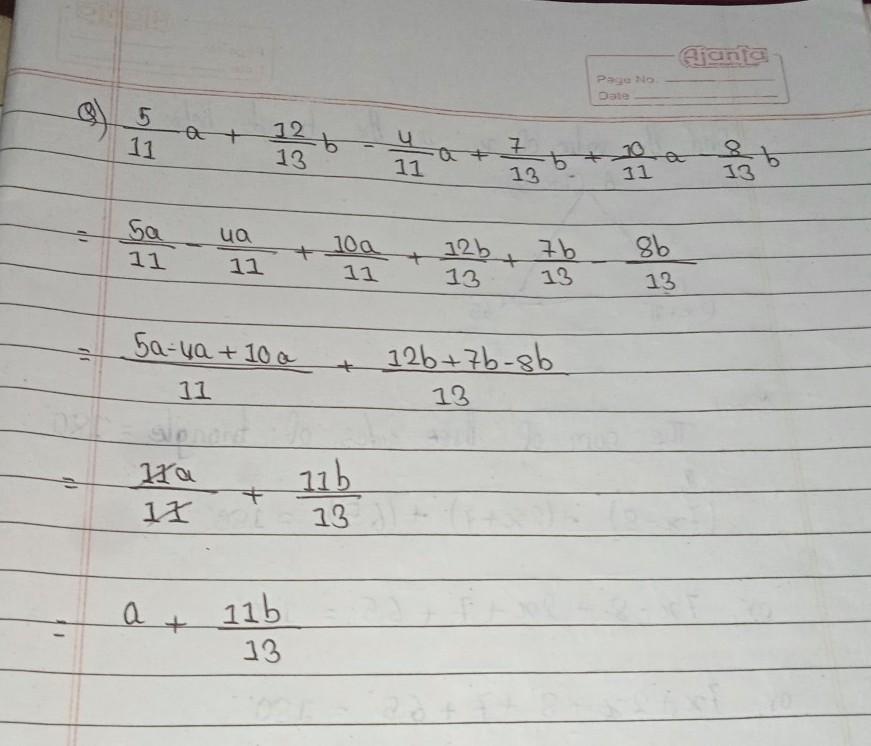 Ajanta
Page No.
Date
Q) 5/11 a + 12/13 b - 4/11 a + 7/13 b + 10/11 a - 8/13 b
= 5a/11 - 4a/11 + 10a/11 + 12b/13 + 7b/13 - 8b/13
= 5a-4a+10a/11 + 12b+7b-8b/13
= 11a/11 + 11b/13
= a + 11b/13